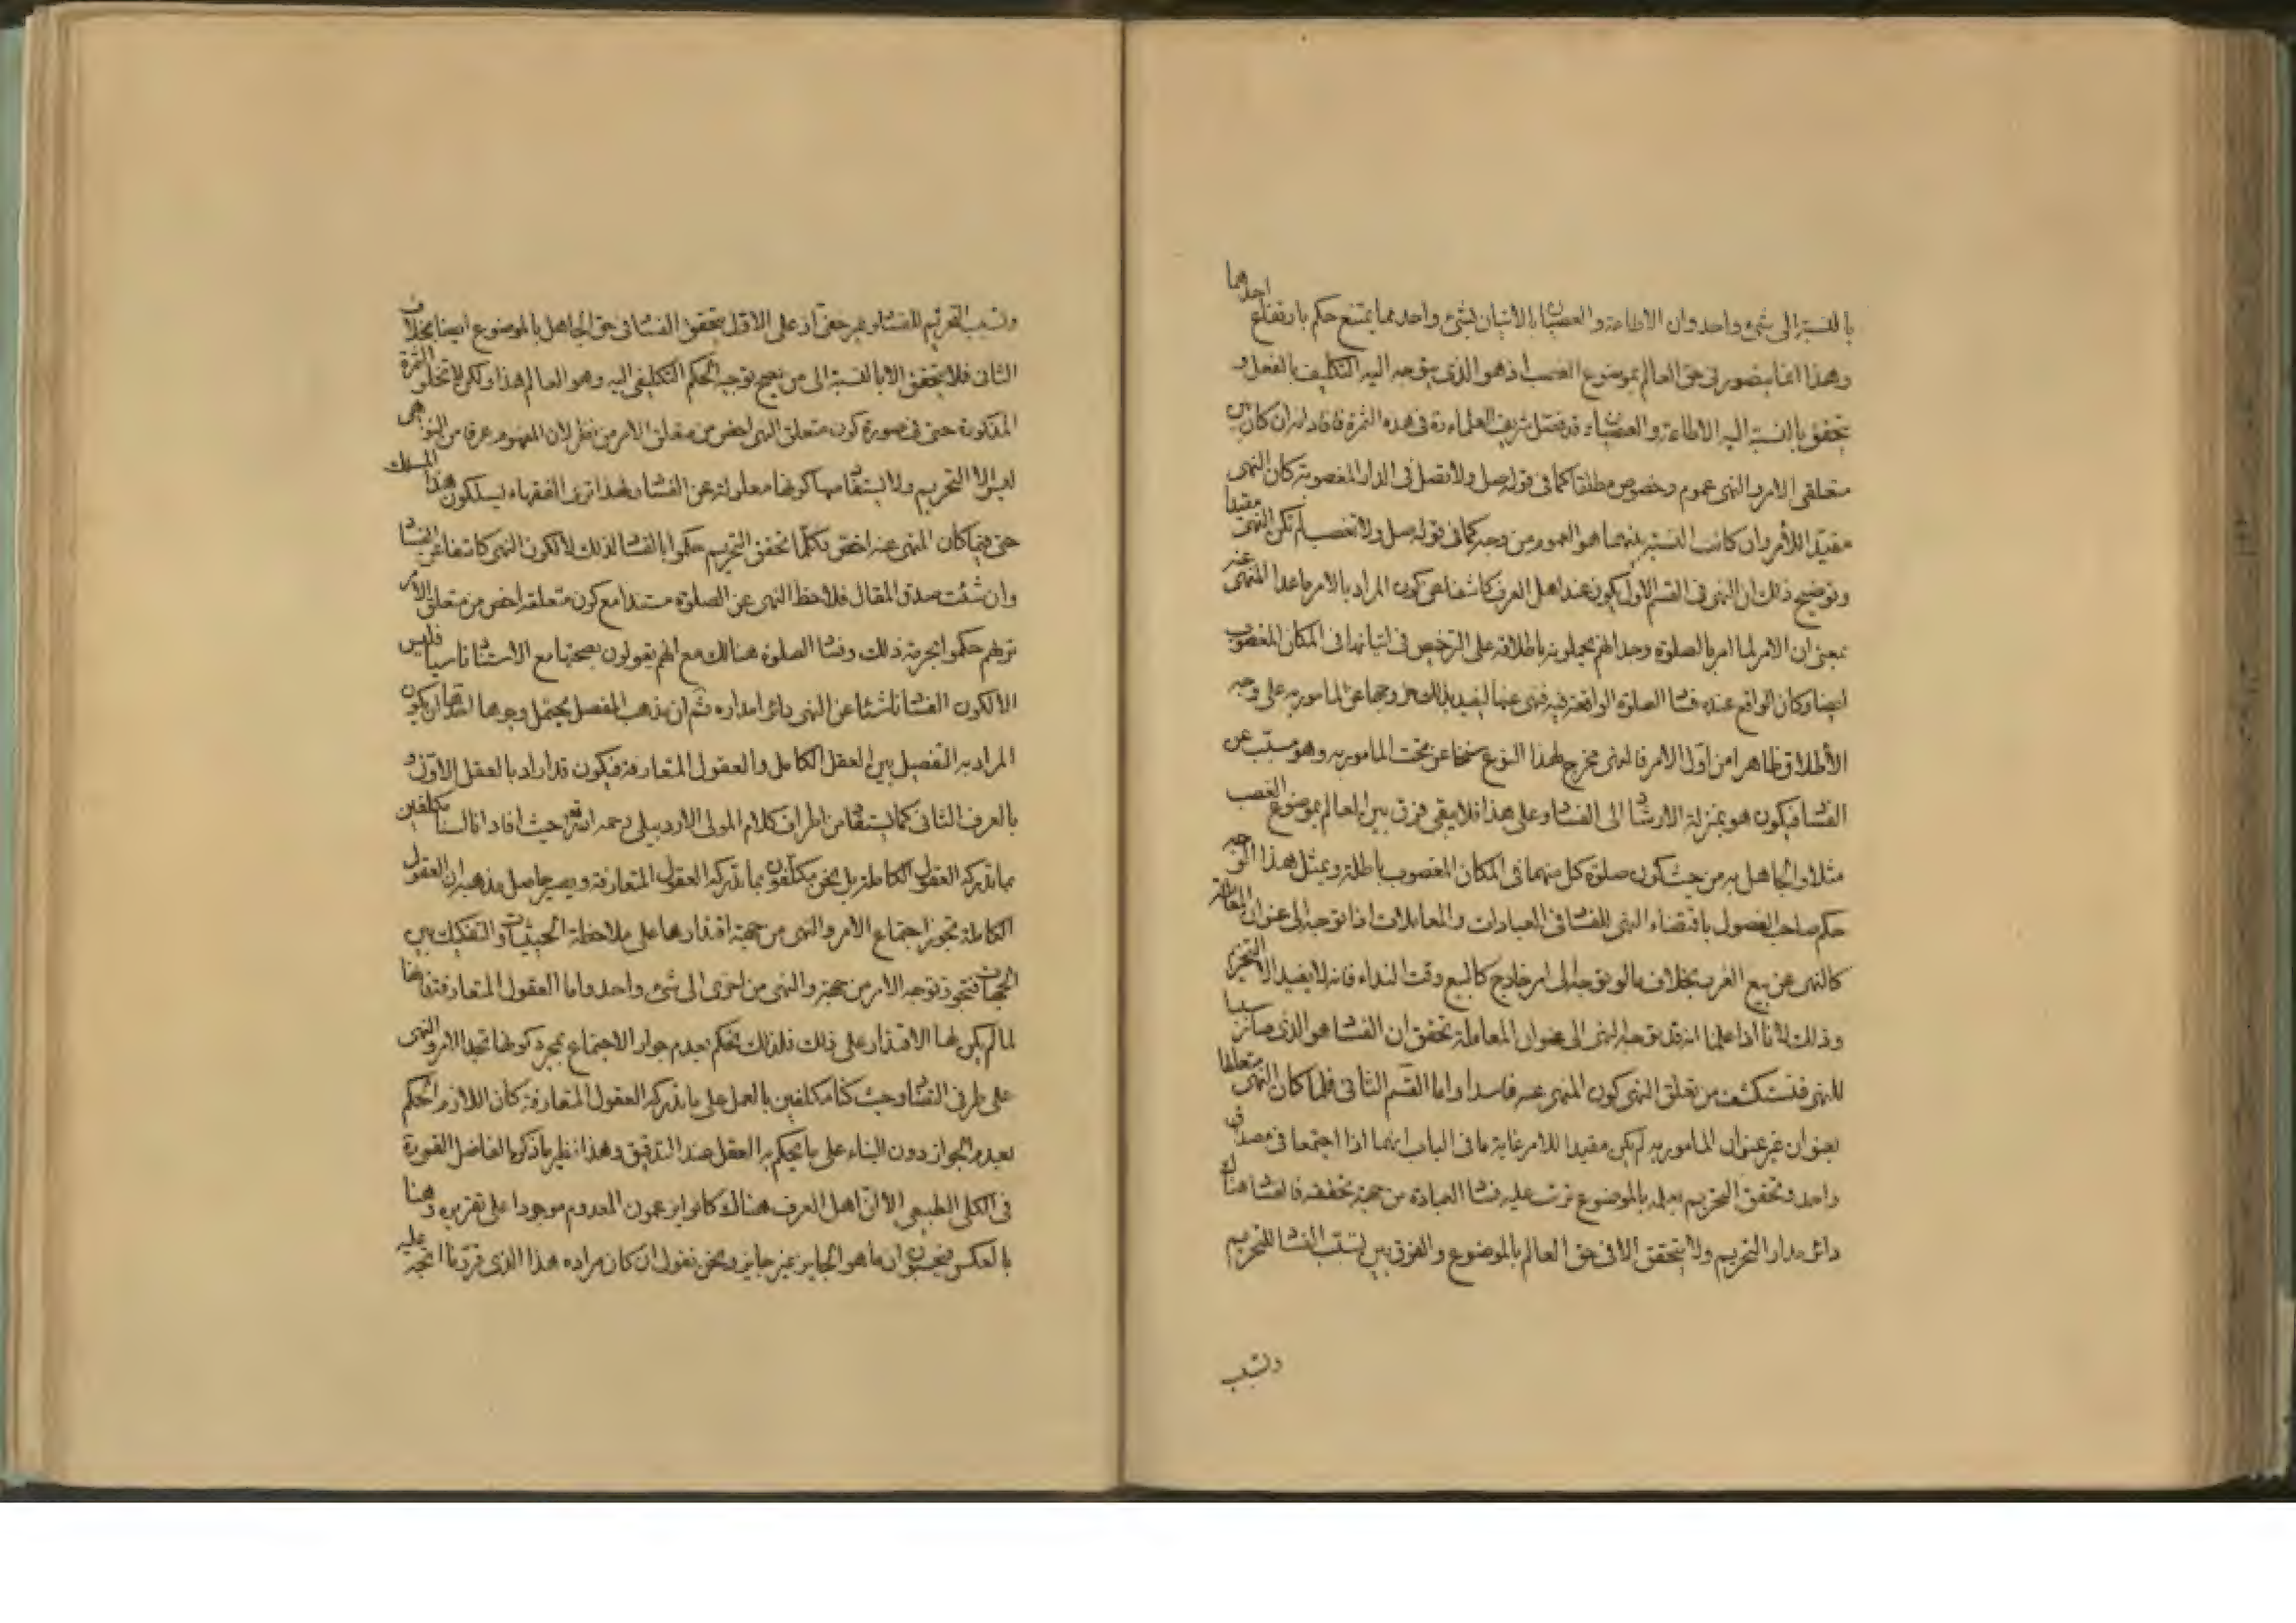 بالنسبة الى شیء واحد وان الاطاعة والعصیان بالاتیان بشیء واحد مما یمتنع حکم بارتفاع احدهما
وهذا انما یتصور فی حق العالم بموضوع الغصب اذ هو الذی یتوجه الیه التکلیف بالفعل و
یتحقق بالنسبة الیه الاطاعة والعصیان قد فصل شریف العلماء ره فی هذه الثمرة فافاد انه ان کان بین
متعلقی الامر والنهی عموم وخصوص مطلقا کما فی قوله صل ولا تصل فی الدار المغصوبة کان النهی
مقیدا للأمر وان کانت النسبة بینهما هو العموم من وجه کما فی قوله صل ولا تغصب لم یکن النهی مقیدا
وتوضیح ذلک ان النهی فی القسم الاول یکون عند اهل العرف کاشفا عن کون المراد بالامر ماعدا المنهی عنه
بمعنی ان الامر لما امر بالصلوة وجد انهم یحملونه باطلاقه علی الترخیص فی اتیانها فی المکان المغصوب
ایضا وکان الواقع عنده فساد الصلوة الواقعة فیه فنهی عنها لیفید بذلک خروجها عن المامور به علی وجه
الأطلاق ظاهرا من اول الامر فالنهی مخرج لهذا النوع عن تحت المامور به وهو مسبب عن
الفساد فیکون هو بمنزلة الارشاد الی الفساد وعلی هذا فلا یبقی فرق بین العالم بموضوع الغصب
مثلا والجاهل به من حیث کون صلوة کل منهما فی المکان المغصوب باطلة وبمثل هذا الوجه
حکم صاحب الفصول باقتضاء النهی للفساد فی العبادات والمعاملات اذا توجه الی عنوان المعاملة
کالنهی عن بیع الغرر بخلاف ما لو توجه الی امر خارج کالبیع وقت النداء فانه لا یفید الا التحریم
وذلک لانا اذا علمنا انه قد توجه النهی الی عنوان المعاملة تحقق ان الفساد هو الذی صار سببا
للنهی فنستکشف من تعلق النهی کون المنهی عنه فاسدا واما القسم الثانی فلما کان النهی متعلقا
بعنوان غیر عنوان المامور به لم یکن مقیدا للامر غایة ما فی الباب انهما اذا اجتمعا فی مصداق
واحد وتحقق التحریم بعلمه بالموضوع ترتب علیه فساد العبادة من جهة تحققه فالفساد هناک
دائر مدار التحریم ولا یتحقق الا فی حق العالم بالموضوع والفرق بین تسبب الفساد للتحریم
وتسبب
وتسبب التحریم للفساد غیر خفی اذ علی الاول یتحقق الفساد فی حق الجاهل بالموضوع ایضا بخلاف
الثانی فلا یتحقق الا بالنسبة الی من یصح توجه الحکم التکلیفی الیه وهو العالم هذا ولکن لا تخلو الثمرة
المذکورة حتی فی صورة کون متعلق النهی اخص من متعلق الامر من نظر لان المفهوم عرفا من النواهی
لیس الا التحریم ولا یستفاد منها کونها معلولة عن الفساد ولهذا تری الفقهاء یسلکون هذا المسلک
حتی فیما کان المنهی عنه اخص فکلما تحقق التحریم حکموا بالفساد لذلک لا لکون النهی کاشفا عن الفساد
وان شئت صدق المقال فلاحظ النهی عن الصلوة مستندا مع کون متعلقه اخص من متعلق الامر
تریهم حکموا بحرمة ذلک وفساد الصلوة هنالک مع انهم یقولون بصحتها مع الاستناد ناسیا فلیس
الا لکون الفساد ناشئا عن النهی دائرا مداره ثم ان مذهب المفصل یحتمل وجوها احدها ان یکون
المراد به التفصیل بین العقل الکامل والعقول المتعارفة فیکون قد اراد بالعقل الاول و
بالعرف الثانی کما یستفاد من اطراف کلام المولی الاردبیلی رحمه الله حیث افاد انا لسنا مکلفین
بما تدرکه العقول الکاملة بل نحن مکلفون بما تدرکه العقول المتعارفة ویصیر حاصل مذهبه ان العقول
الکاملة تجوز اجتماع الامر والنهی من جهة اقتدارها علی ملاحظة الحیثیات والتفکیک بین
الجهات فتجوز توجه الامر من جهة والنهی من اخری الی شیء واحد واما العقول المتعارفة فانها
لما لم یکن لها الاقتدار علی ذلک فلذلک تحکم بعدم جواز الاجتماع بمجرد کونها تجد الامر والنهی
علی طرفی التضاد وحیث کنا مکلفین بالعمل علی ما تدرکه العقول المتعارفة کان اللازم الحکم
بعدم الجواز دون البناء علی ما یحکم به العقل عند التدقیق وهذا نظیر ما ذکره الفاضل القمی ره
فی الکلی الطبیعی الا ان اهل العرف هناک کانوا یزعمون المعدوم موجودا علی تقریره وهنا
بالعکس فیحسبون ان ما هو الجایز غیر جایز ونحن نقول ان کان مراده هذا الذی قررنا اتجه علیه